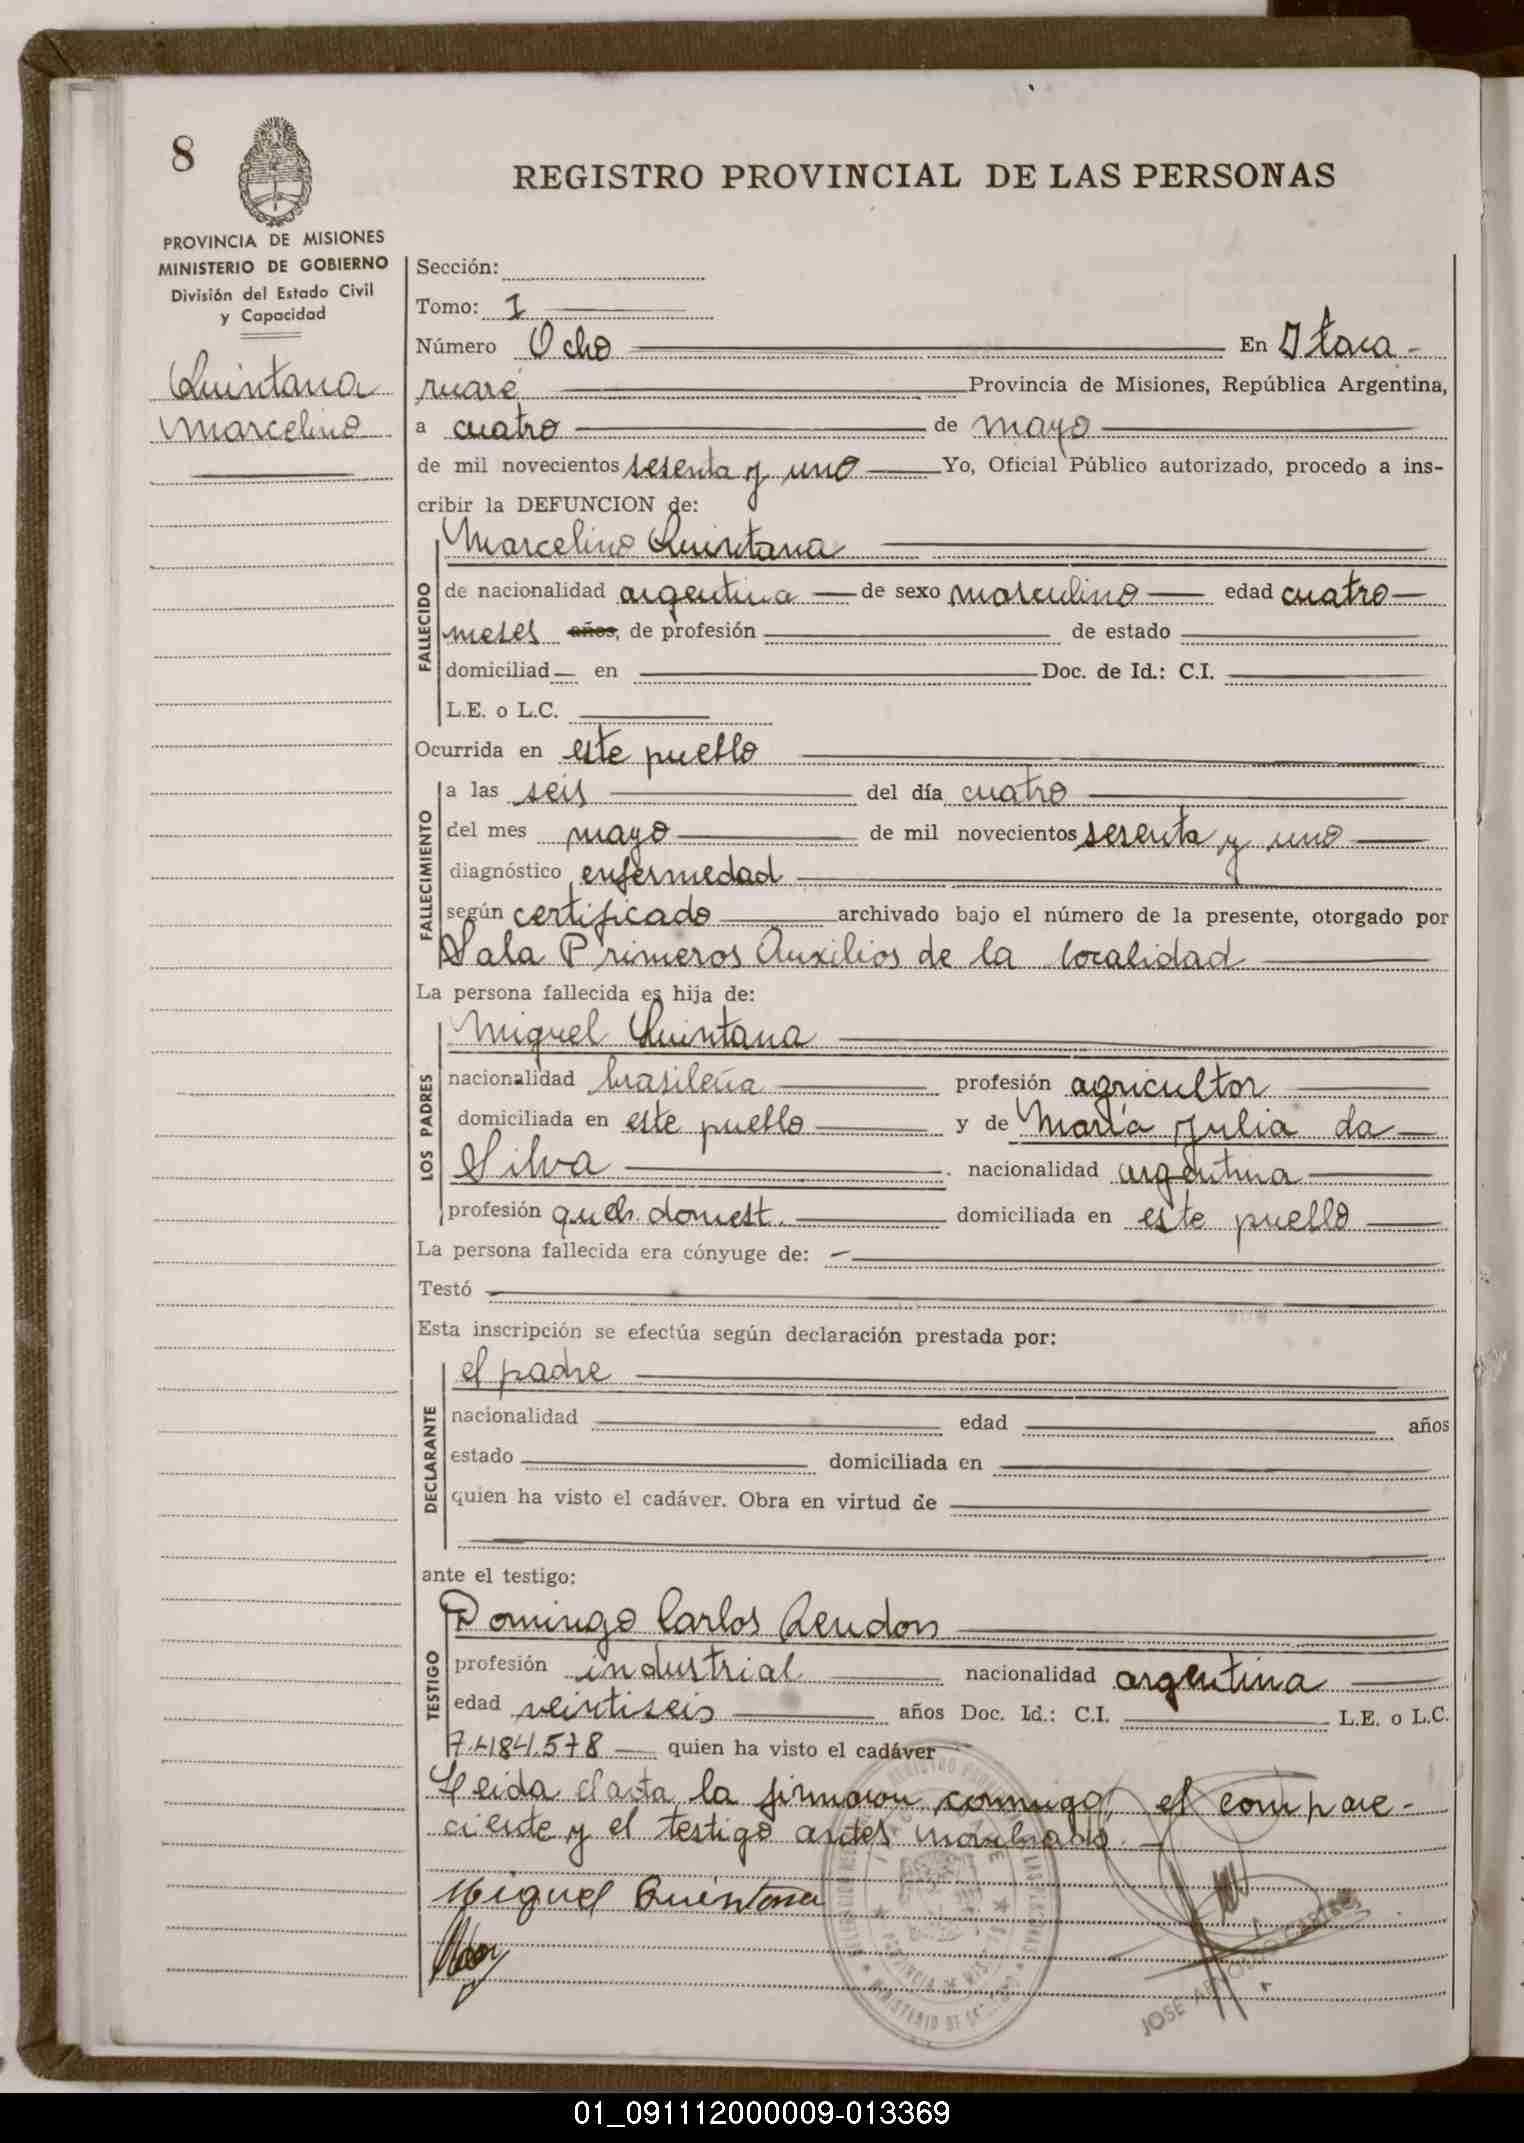 8
REGISTRO PROVINCIAL DE LAS PERSONAS
PROVINCIA DE MISIONES
MINISTERIO DE GOBIERNO
División del Estado Civil
y Capacidad
Quintana
Marcelino
Sección:
Tomo: 1
Número Ocho En Itaca-
ruaré Provincia de Misiones, República Argentina,
a cuatro de mayo
de mil novecientos sesenta y uno Yo, Oficial Público autorizado, procedo a ins-
cribir la DEFUNCION de:
Marcelino Quintana
FALLECIDO
de nacionalidad argentina de sexo masculino edad cuatro
meses años, de profesión de estado
domiciliad en Doc. de Id.: C.I.
L.E. o L.C.
Ocurrida en este pueblo
FALLECIMIENTO
a las seis del día cuatro
del mes mayo de mil novecientos sesenta y uno
diagnóstico enfermedad
según certificado archivado bajo el número de la presente, otorgado por
Sala Primeros Auxilios de la localidad
La persona fallecida es hija de:
LOS PADRES
Miguel Quintana
nacionalidad brasileña profesión agricultor
domiciliada en este pueblo y de María Julia da
Silva nacionalidad argentina
profesión queh. domest. domiciliada en este pueblo
La persona fallecida era cónyuge de:
Testó
Esta inscripción se efectúa según declaración prestada por:
DECLARANTE
el padre
nacionalidad edad años
estado domiciliada en
quien ha visto el cadáver. Obra en virtud de
ante el testigo:
TESTIGO
Domingo Carlos Rendon
profesión industrial nacionalidad argentina
edad veintiseis años Doc. Id.: C.I. L.E. o L.C.
7.484.578 quien ha visto el cadáver
Leida el acta la firmaron conmigo, el compare-
ciente y el testigo antes nombrado.
Miguel Quintana
PROVINCIA DE MISIONES
MINISTERIO DE GOBIERNO
JOSE
01_091112000009-013369